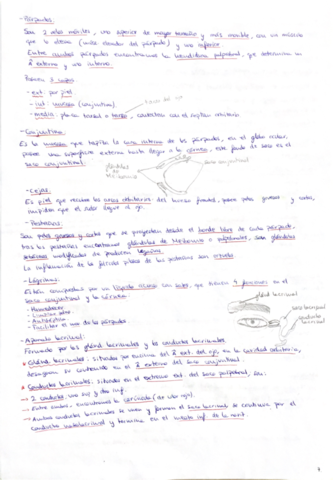 - Párpados.
Son 2 velos móviles, uno superior de mayor tamaño y más móvil, con un músculo
que lo eleva (músc. elevador del párpado) y uno inferior.
Entre ambos párpados encontramos la hendidura palpebral, que determina un
externo y uno interno.
Poseen 3 capas
- ext. por piel
- int. mucosa (conjuntiva)
- media, placa tarsal o tarso,
- Conjuntiva.
Es la mucosa que tapiza la cara interna de los párpados, en el globo ocular,
posee una superficie externa hasta llegar a la córnea, este fondo de saco es el
saco conjuntival.
glándulas de Meibomio
saco conjuntival
- Cejas.
Es piel que recubre los arcos orbitarios del hueso frontal, posee pelos gruesos y cortos,
impiden que el sudor llegue al ojo.
- Pestañas.
Son pelos gruesos y cortos que se proyectan desde el borde libre de cada párpado,
tras las pestañas encontramos glándulas de Meibomio o palpebrales, son glándulas
sebáceas modificadas
La inflamación de los folículos pilosos de las pestañas son orzuelo
- Lágrimas.
Están compuestas por un líquido con sales, que tienen 4 funciones en el
saco conjuntival y la córnea:
- Humedecer
- Antibiótico
- Facilitar el uso de los párpados
glánd lacrimal
saco lacrimal
conducto lacrimal
- Aparato lacrimal.
Formado por las glánd lacrimales y los conductos lacrimales.
Glánd. lacrimales, situadas por encima del ext. del ojo, en la cavidad orbitaria,
externo del saco conjuntival.
Conductos lacrimales, situados en el extremo del saco palpebral, son:
→ 2 conductos, uno sup y otro inf.
→ Entre ambos, encontramos la carúncula (de color rojo).
→ Ambos conductos lacrimales se unen y forman el saco lacrimal se continúa por el
conducto nasolacrimal y termina en el meato inf. de la nariz.